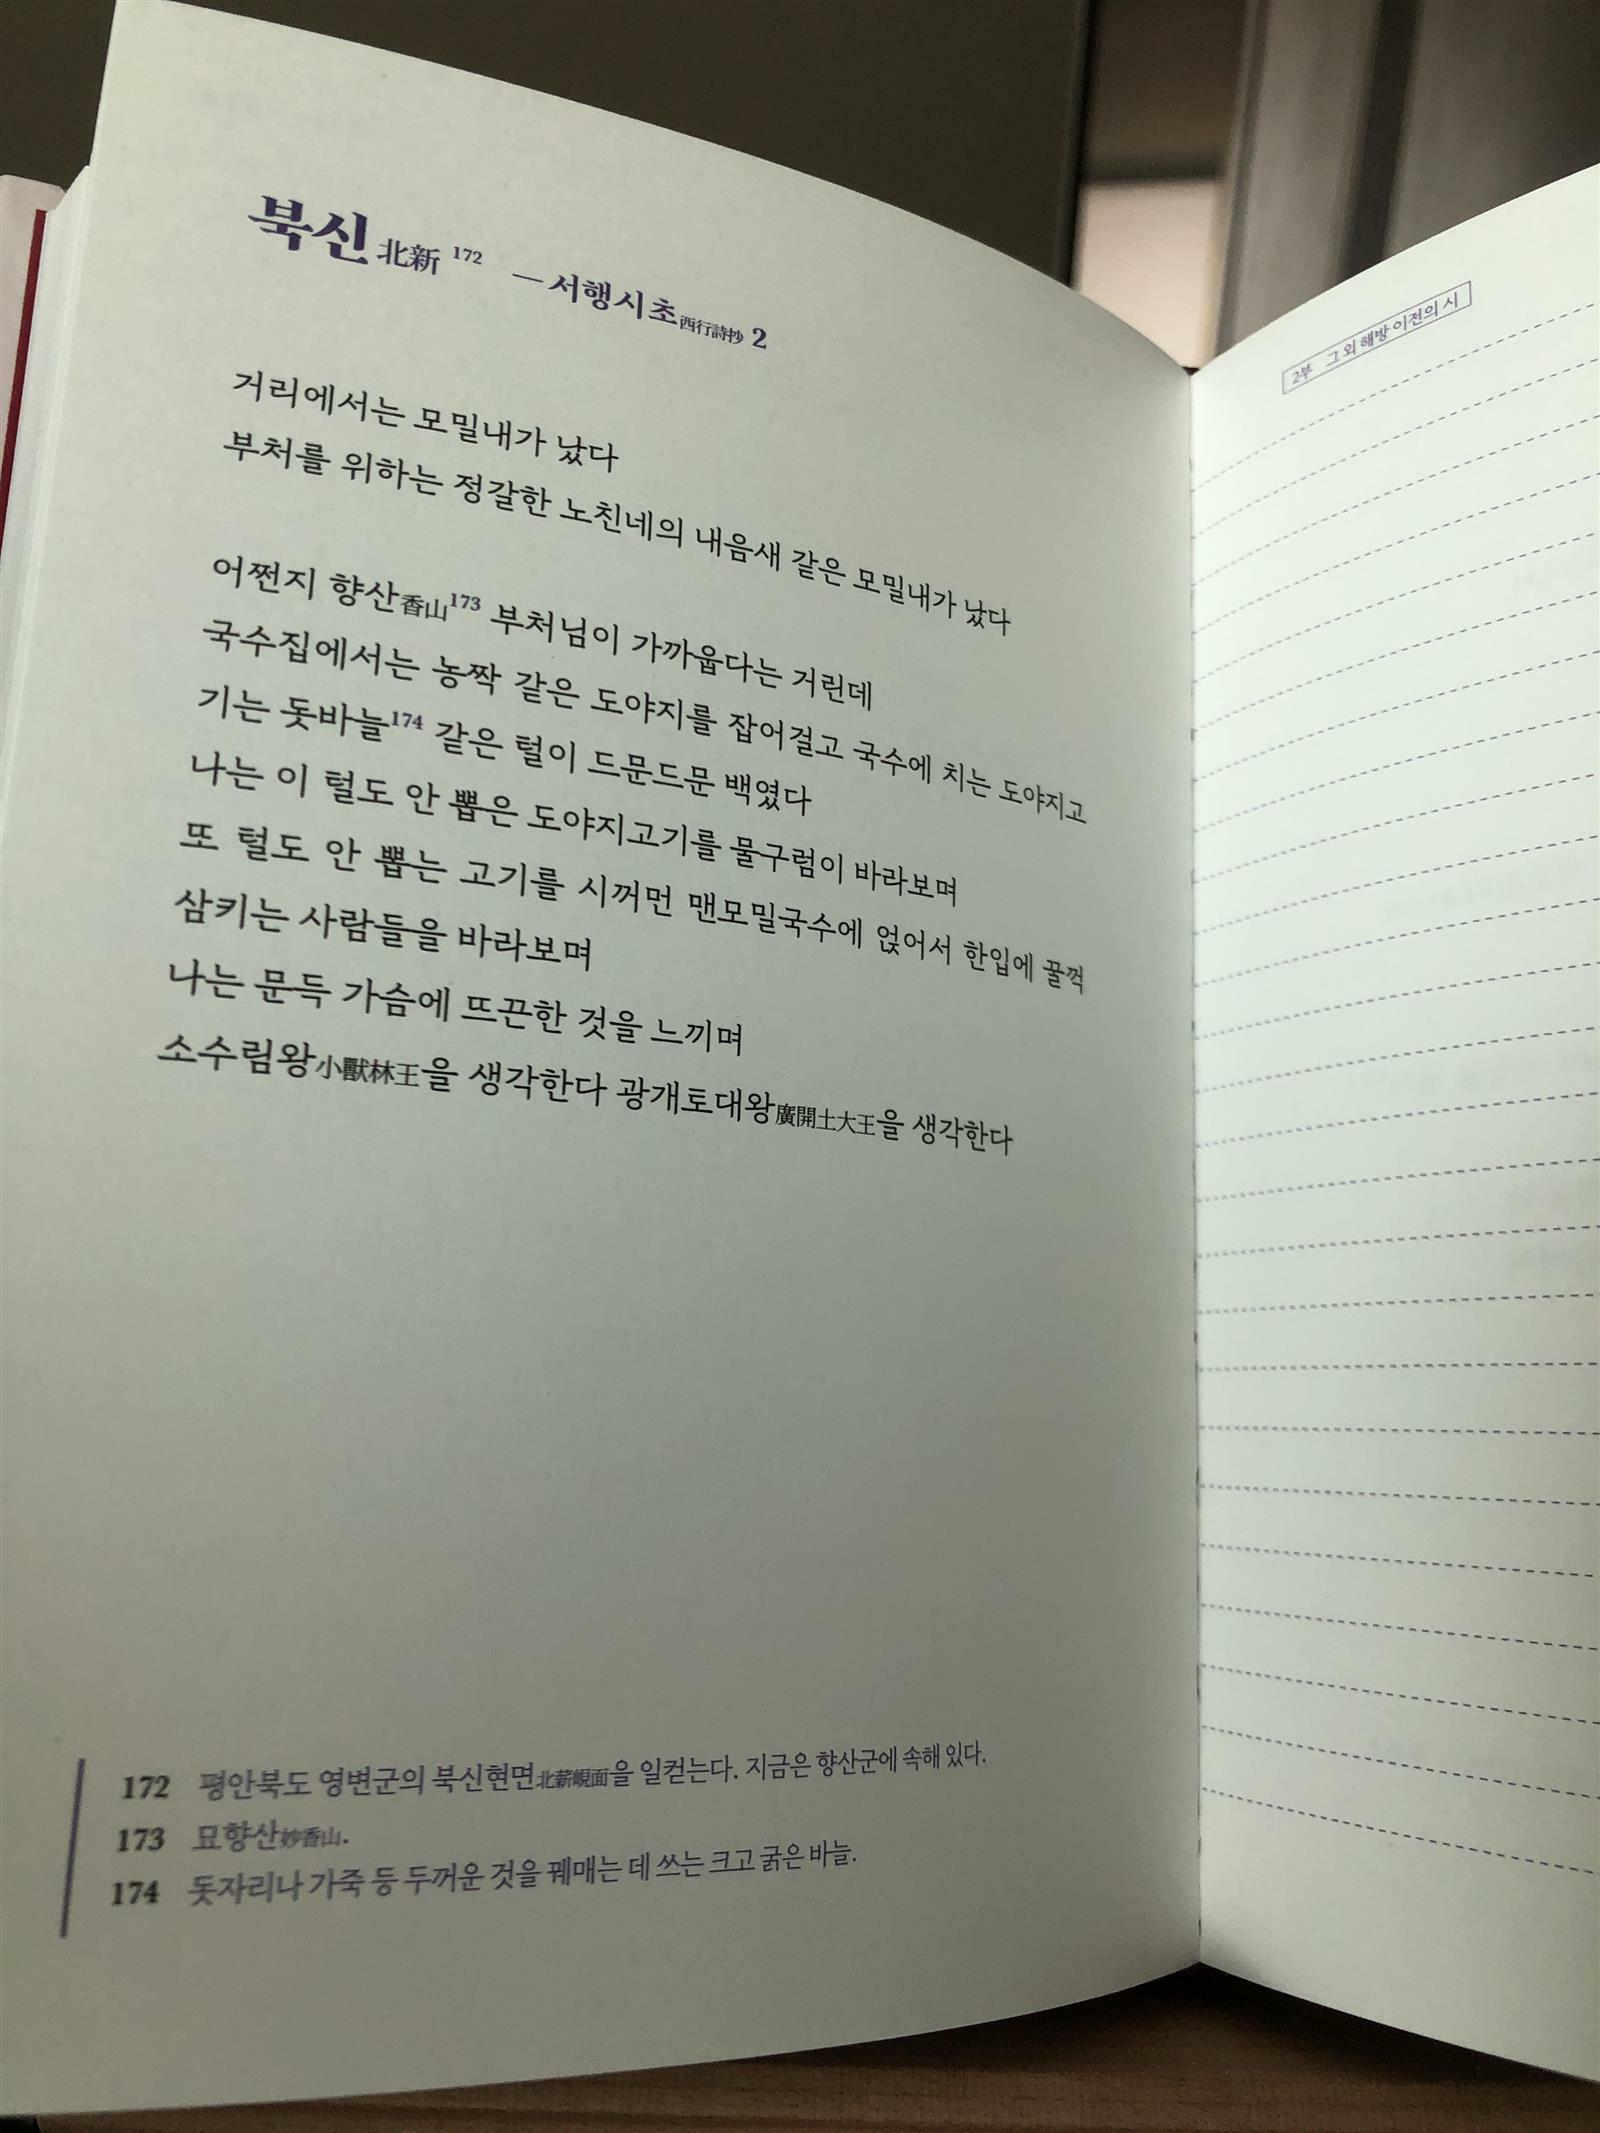 북신北新 172 ―서행시초西行詩抄 2
거리에서는 모밀내가 났다
부처를 위하는 정갈한 노친네의 내음새 같은 모밀내가 났다
어쩐지 향산香山173 부처님이 가까웁다는 거린데
국수집에서는 농짝 같은 도야지를 잡어걸고 국수에 치는 도야지고
기는 돗바늘174 같은 털이 드문드문 백였다
나는 이 털도 안 뽑은 도야지고기를 물구럼이 바라보며
또 털도 안 뽑는 고기를 시꺼먼 맨모밀국수에 얹어서 한입에 꿀꺽
삼키는 사람들을 바라보며
나는 문득 가슴에 뜨끈한 것을 느끼며
소수림왕小獸林王을 생각한다 광개토대왕廣開土大王을 생각한다
172 평안북도 영변군의 북신현면北薪峴面을 일컫는다. 지금은 향산군에 속해 있다.
173 묘향산妙香山.
174 돗자리나 가죽 등 두꺼운 것을 꿰매는 데 쓰는 크고 굵은 바늘.
2부 그 외 해방 이전의 시